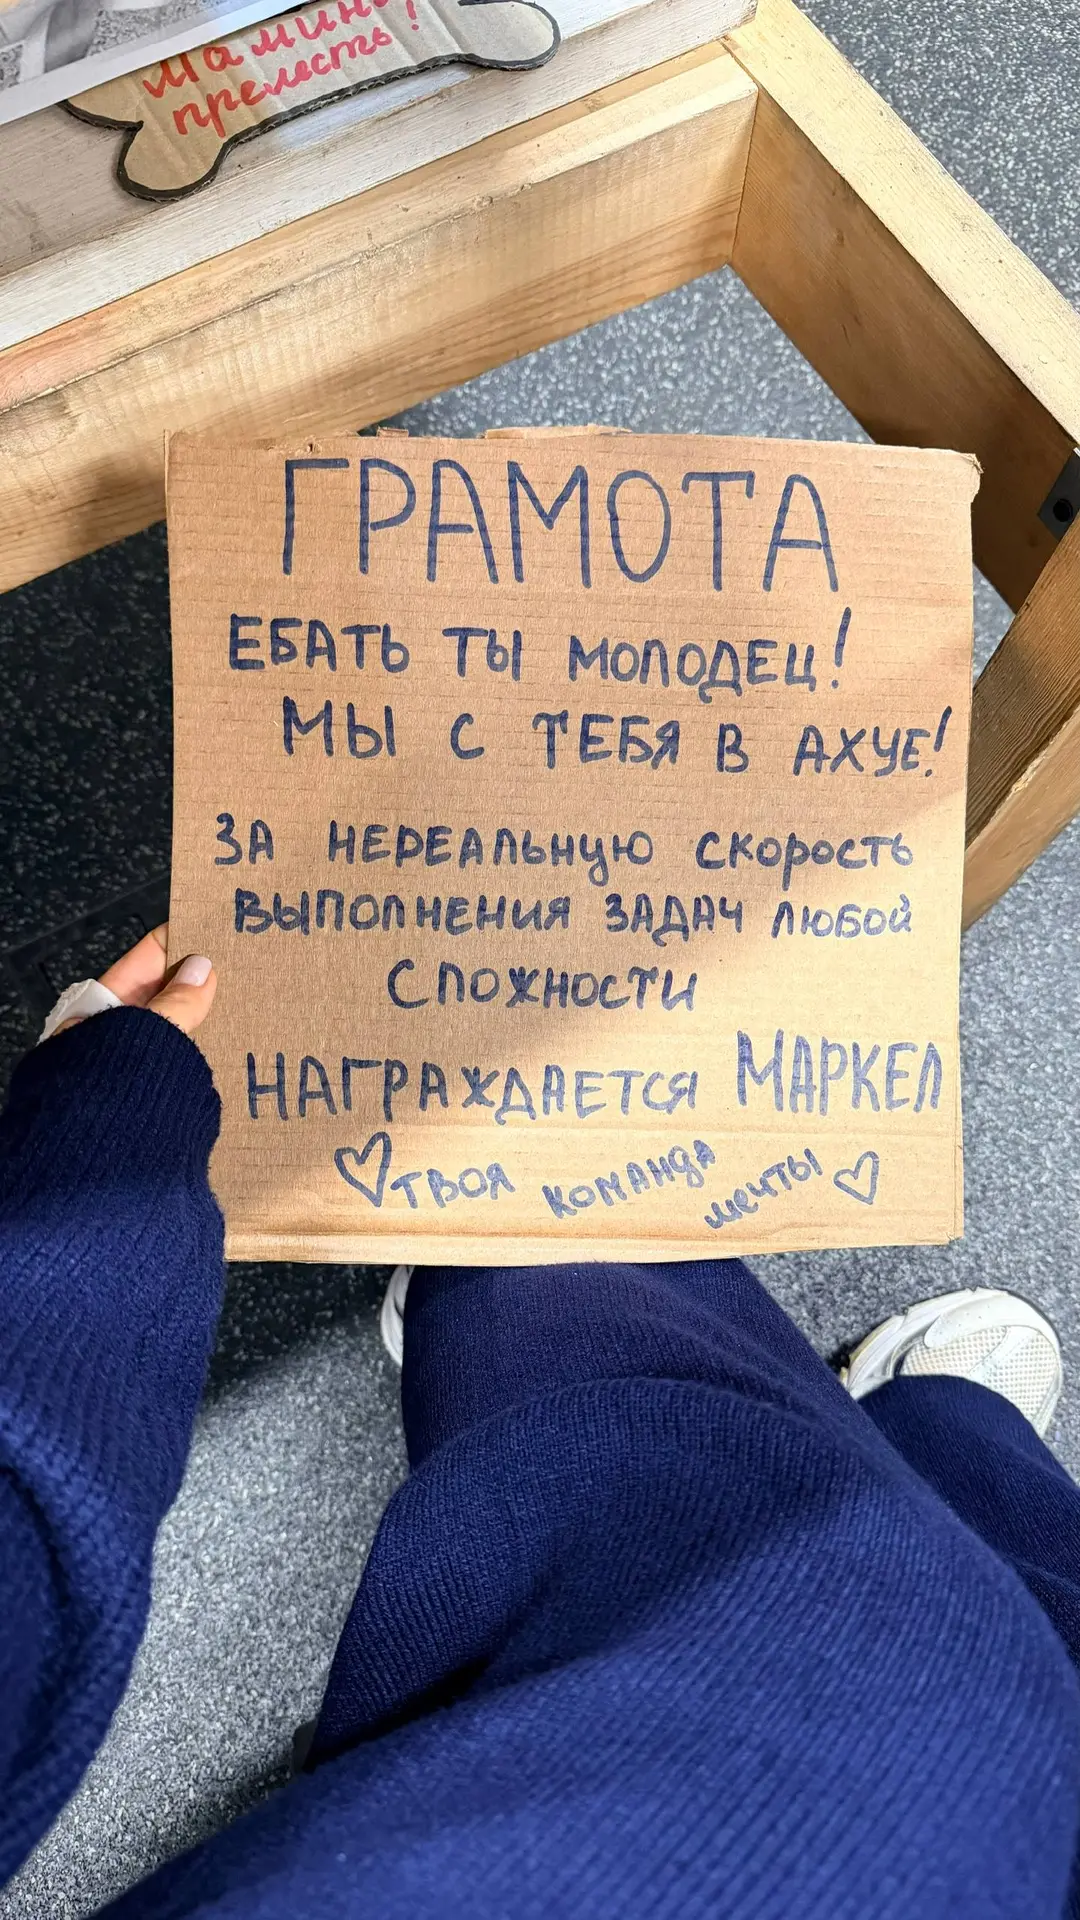 Мамина
прелесть!
ГРАМОТА
ЕБАТЬ ТЫ МОЛОДЕЦ!
МЫ С ТЕБЯ В АХУЕ!
ЗА НЕРЕАЛЬНУЮ СКОРОСТЬ
ВЫПОЛНЕНИЯ ЗАДАЧ ЛЮБОЙ
СЛОЖНОСТИ
НАГРАЖДАЕТСЯ МАРКЕЛ
♡ ТВОЯ КОМАНДА МЕЧТЫ ♡